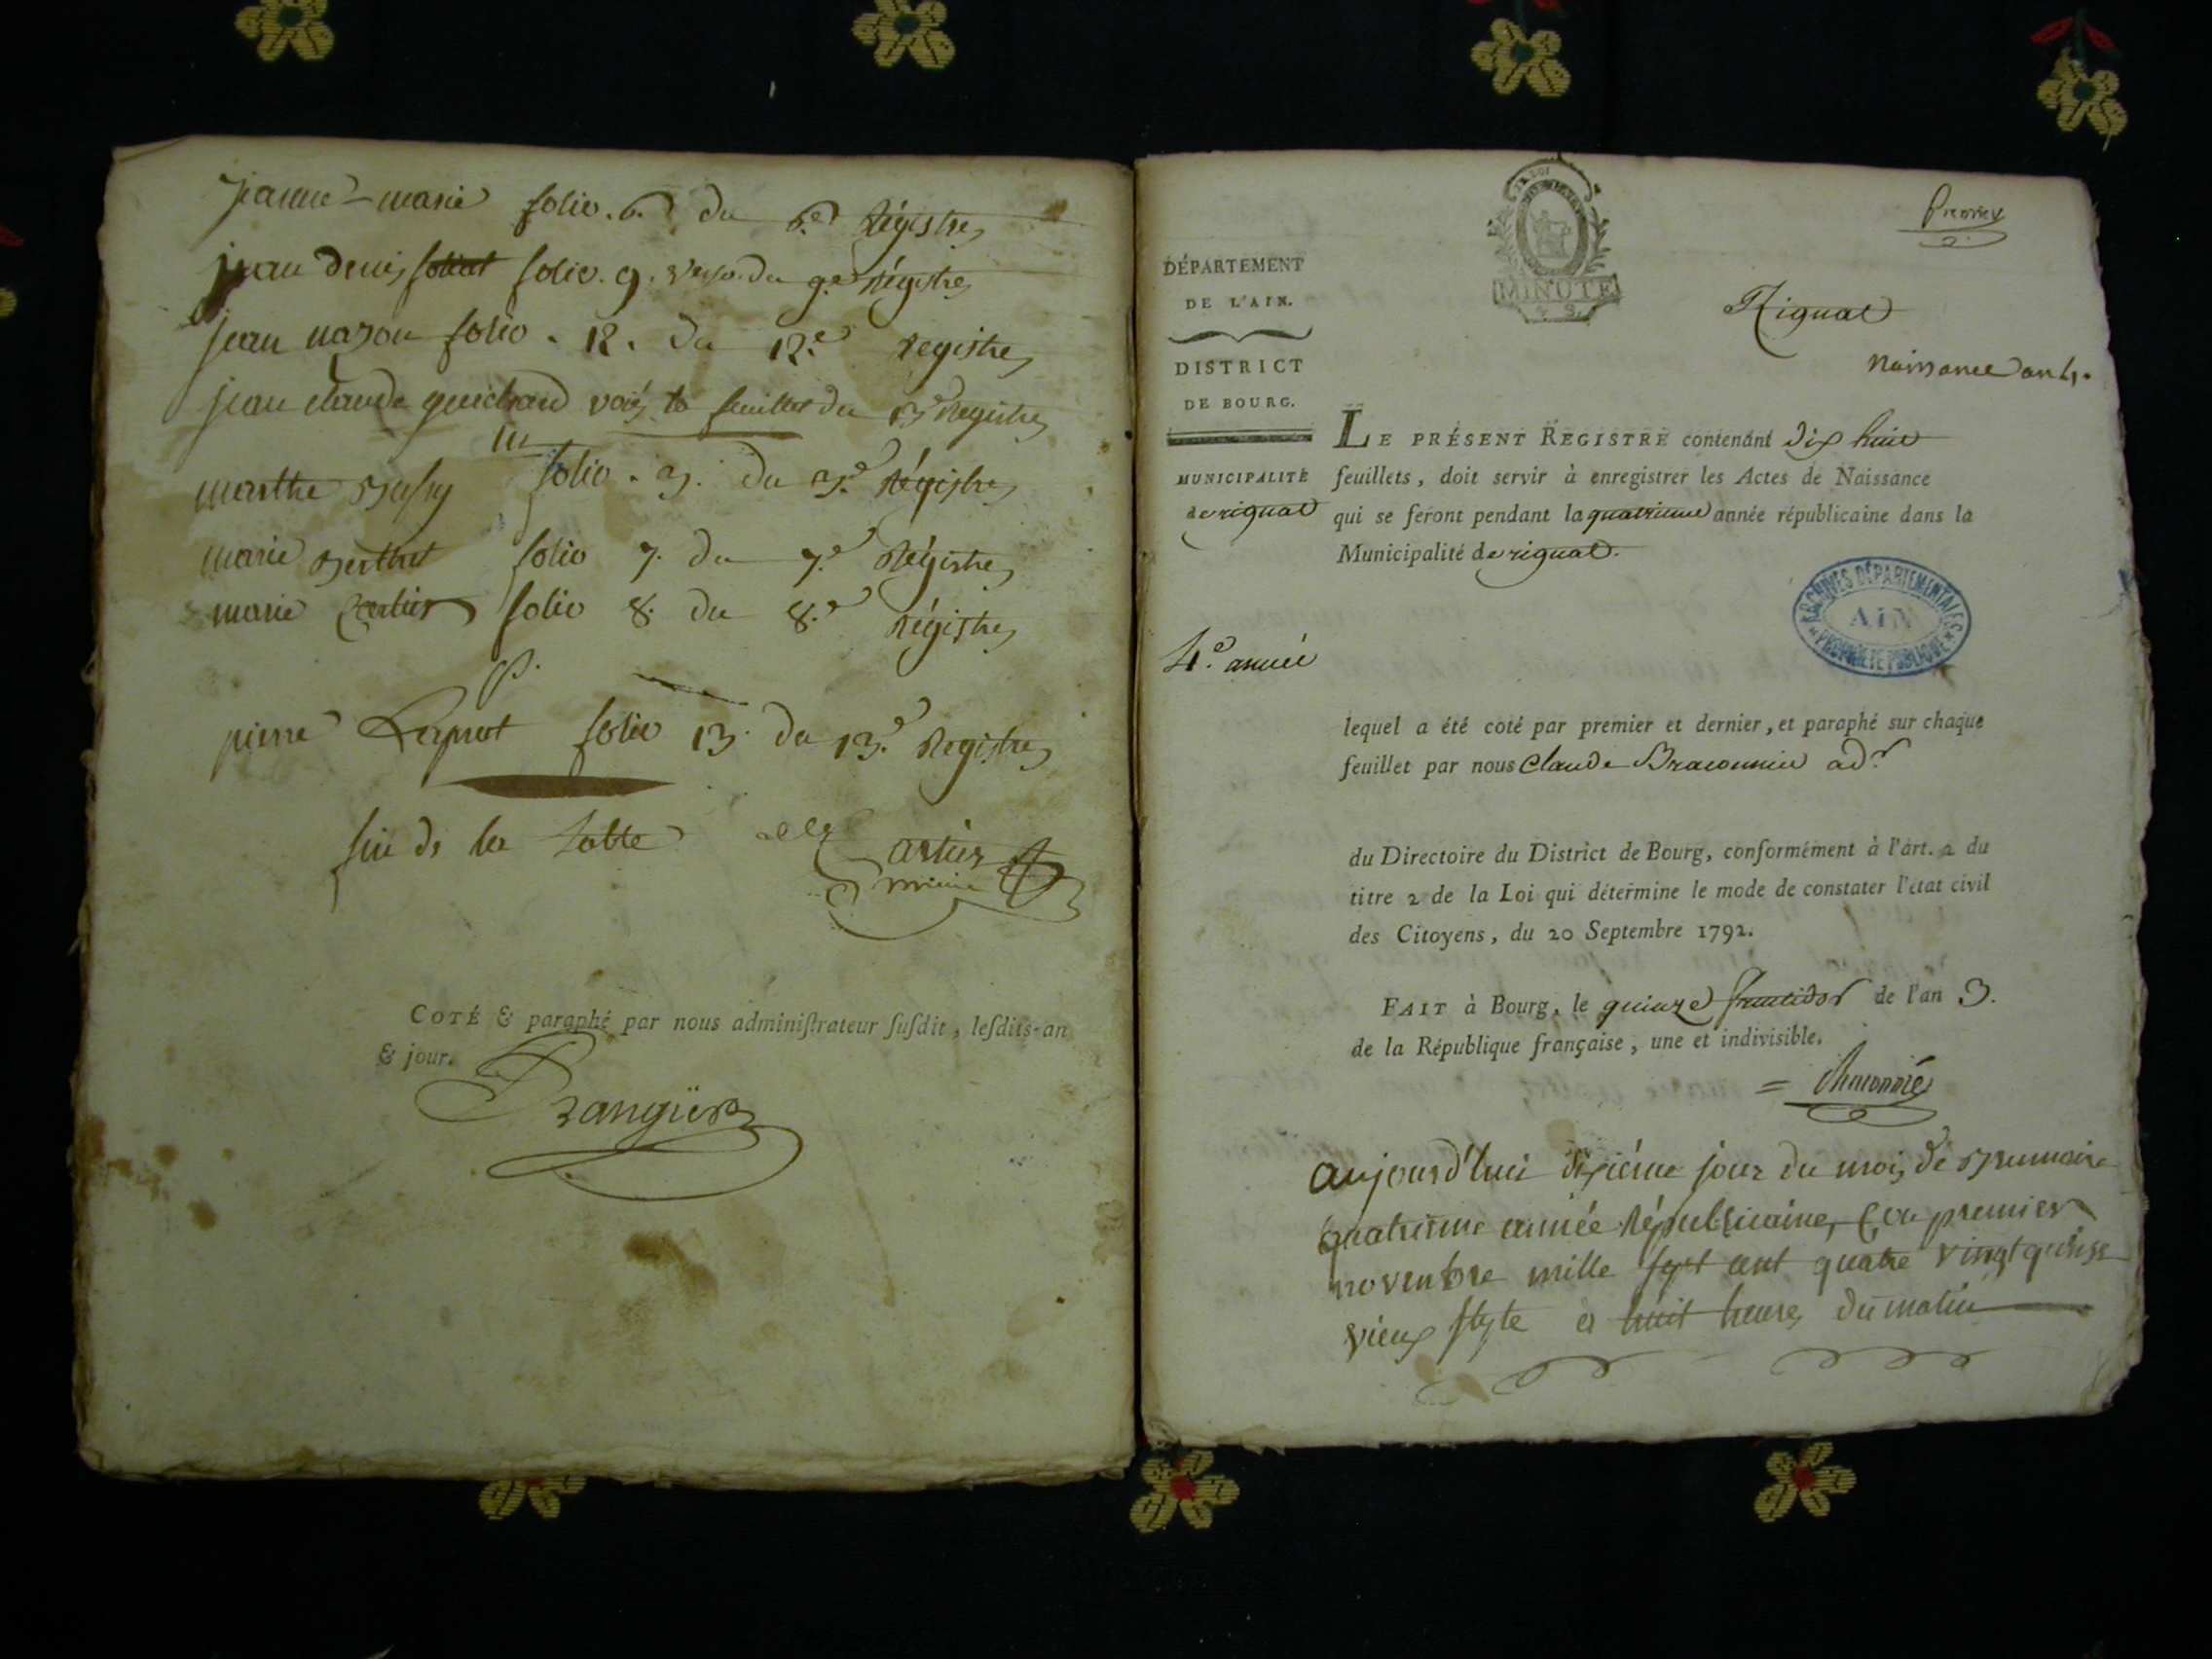 Jeanne-marie folio. 6. du 6.e Régistre
jean denis folio. 9. verso. du 9.e Régistre
jean nazon folio. 12. du 12.e registre
jean claude guichard voiés le feuillet du 13e Registre
m
marthe folio. 3. du 3.e Régistre
marie Berthet folio 7. du 7.e Régistre
marie Cartier folio 8. du 8.e régistre
p.
pierre folio 13. du 13.e Registre
fin de la table
artier
COTÉ & paraphé par nous adminiſtrateur ſuſdit, leſdits-an
& jour.
Brangier
Premier
MINUTE
Rignat
Naissance an 4.
DÉPARTEMENT
DE L'AIN.
DISTRICT
DE BOURG.
MUNICIPALITÉ
de rignat
LE PRÉSENT REGISTRE contenant dix huit
feuillets, doit servir à enregistrer les Actes de Naissance
qui se feront pendant la quatrieme année républicaine dans la
Municipalité de rignat.
ARCHIVES DÉPARTEMENTALES
AIN
PROPRIÉTÉ PUBLIQUE
4.e année
lequel a été coté par premier et dernier, et paraphé sur chaque
feuillet par nous Claude Braconnier adr
du Directoire du District de Bourg, conformément à l'art. 2 du
titre 2 de la Loi qui détermine le mode de constater l'état civil
des Citoyens, du 20 Septembre 1792.
FAIT à Bourg, le quinze fructidor de l'an 3.
de la République française, une et indivisible.
aujourd'hui dixiéme jour du mois de Brumaire
quatrieme année républicaine, ou premier
novembre mille sept cent quatre vingt quinze
vieux style à huit heures du matin